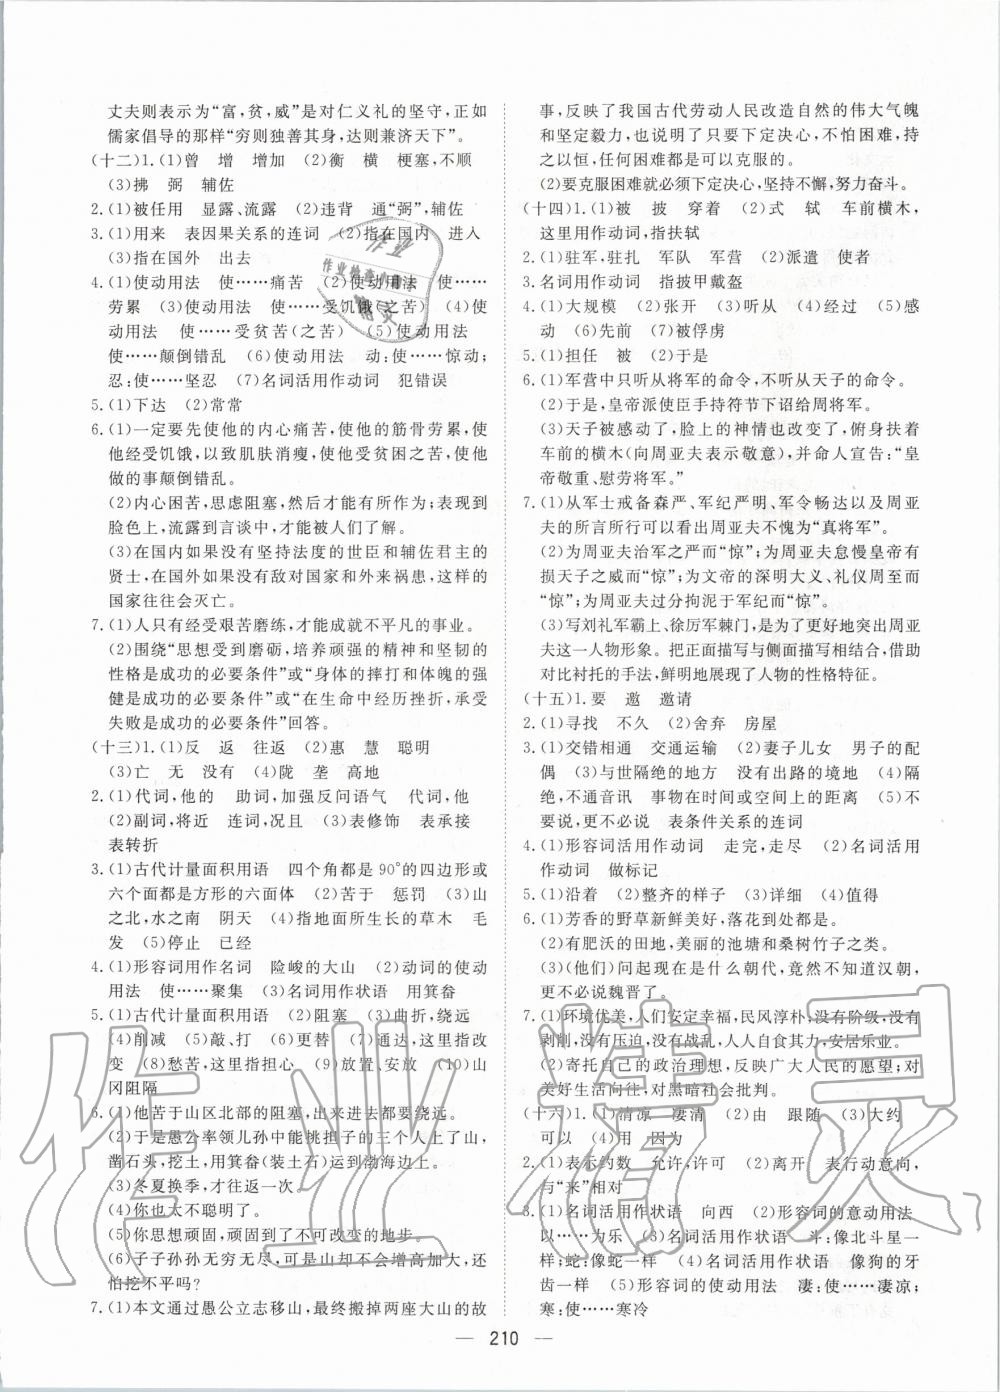 丈夫则表示为“富，贫，威”是对仁义礼的坚守，正如
儒家倡导的那样“穷则独善其身，达则兼济天下”。
(十二)1.(1)曾 增 增加 (2)衡 横 梗塞，不顺
(3)拂 弼 辅佐
2.(1)被任用 显露、流露 (2)违背 通“弼”，辅佐
3.(1)用来 表因果关系的连词 (2)指在国内 进入
(3)指在国外 出去
4.(1)使动用法 使……痛苦 (2)使动用法 使……
劳累 (3)使动用法 使……受饥饿(之苦) (4)使
动用法 使……受贫苦(之苦) (5)使动用法
使……颠倒错乱 (6)使动用法 动:使……惊动;
忍:使……坚忍 (7)名词活用作动词 犯错误
5.(1)下达 (2)常常
6.(1)一定要先使他的内心痛苦，使他的筋骨劳累，使
他经受饥饿，以致肌肤消瘦，使他受贫困之苦，使他
做的事颠倒错乱。
(2)内心困苦，思虑阻塞，然后才能有所作为;表现到
脸色上，流露到言谈中，才能被人们了解。
(3)在国内如果没有坚持法度的世臣和辅佐君主的
贤士，在国外如果没有敌对国家和外来祸患，这样的
国家往往会灭亡。
7.(1)人只有经受艰苦磨练，才能成就不平凡的事业。
(2)围绕“思想受到磨砺，培养顽强的精神和坚韧的
性格是成功的必要条件”或“身体的摔打和体魄的强
健是成功的必要条件”或“在生命中经历挫折，承受
失败是成功的必要条件”回答。
(十三)1.(1)反 返 往返 (2)惠 慧 聪明
(3)亡 无 没有 (4)陇 垄 高地
2.(1)代词，他的 助词，加强反问语气 代词，他
(2)副词，将近 连词，况且 (3)表修饰 表承接
表转折
3.(1)古代计量面积用语 四个角都是90°的四边形或
六个面都是方形的六面体 (2)苦于 惩罚 (3)山
之北，水之南 阴天 (4)指地面所生长的草木 毛
发 (5)停止 已经
4.(1)形容词用作名词 险峻的大山 (2)动词的使动
用法 使……聚集 (3)名词用作状语 用箕畚
5.(1)古代计量面积用语 (2)阻塞 (3)曲折，绕远
(4)削减 (5)敲、打 (6)更替 (7)通达，这里指改
变 (8)愁苦，这里指担心 (9)放置、安放 (10)山
冈阻隔
6.(1)他苦于山区北部的阻塞，出来进去都要绕远。
(2)于是愚公率领儿孙中能挑担子的三个人上了山，
凿石头，挖土，用箕畚(装土石)运到渤海边上。
(3)冬夏换季，才往返一次。
(4)你也太不聪明了。
(5)你思想顽固，顽固到了不可改变的地步。
(6)子子孙孙无穷无尽，可是山却不会增高加大，还
怕挖不平吗?
7.(1)本文通过愚公立志移山，最终搬掉两座大山的故
事，反映了我国古代劳动人民改造自然的伟大气魄
和坚定毅力，也说明了只要下定决心，不怕困难，持
之以恒，任何困难都是可以克服的。
(2)要克服困难就必须下定决心，坚持不懈，努力奋斗。
(十四)1.(1)被 披 穿着 (2)式 轼 车前横木，
这里用作动词，指扶轼
2.(1)驻军，驻扎 军队 军营 (2)派遣 使者
3.名词用作动词 指披甲戴盔
4.(1)大规模 (2)张开 (3)听从 (4)经过 (5)感
动 (6)先前 (7)被俘虏
5.(1)担任 被 (2)于是
6.(1)军营中只听从将军的命令，不听从天子的命令。
(2)于是，皇帝派使臣手持符节下诏给周将军。
(3)天子被感动了，脸上的神情也改变了，俯身扶着
车前的横木(向周亚夫表示敬意)，并命人宣告:“皇
帝敬重、慰劳将军。”
7.(1)从军士戒备森严、军纪严明、军令畅达以及周亚
夫的所言所行可以看出周亚夫不愧为“真将军”。
(2)为周亚夫治军之严而“惊”;为周亚夫怠慢皇帝有
损天子之威而“惊”;为文帝的深明大义、礼仪周至而
“惊”;为周亚夫过分拘泥于军纪而“惊”。
(3)写刘礼军霸上、徐厉军棘门，是为了更好地突出周亚
夫这一人物形象。把正面描写与侧面描写相结合，借助
对比衬托的手法，鲜明地展现了人物的性格特征。
(十五)1.要 邀 邀请
2.(1)寻找 不久 (2)舍弃 房屋
3.(1)交错相通 交通运输 (2)妻子儿女 男子的配
偶 (3)与世隔绝的地方 没有出路的境地 (4)隔
绝，不通音讯 事物在时间或空间上的距离 (5)不
要说，更不必说 表条件关系的连词
4.(1)形容词活用作动词 走完，走尽 (2)名词活用
作动词 做标记
5.(1)沿着 (2)整齐的样子 (3)详细 (4)值得
6.(1)芳香的野草新鲜美好，落花到处都是。
(2)有肥沃的田地，美丽的池塘和桑树竹子之类。
(3)(他们)问起现在是什么朝代，竟然不知道汉朝，
更不必说魏晋了。
7.(1)环境优美，人们安定幸福，民风淳朴，没有阶级，没有
剥削，没有压迫，没有战乱，人人自食其力，安居乐业。
(2)寄托自己的政治理想，反映广大人民的愿望;对
美好生活向往，对黑暗社会批判。
(十六)1.(1)清凉 凄清 (2)由 跟随 (3)大约
可以 (4)用 因为
2.(1)表示约数 允许，许可 (2)离开 表行动意向，
与“来”相对
3.(1)名词活用作状语 向西 (2)形容词的意动用法
以……为乐 (3)名词活用作状语 斗:像北斗星一
样;蛇:像蛇一样 (4)名词活用作状语 像狗的牙
齿一样 (5)形容词的使动用法 凄:使……凄凉;
寒:使……寒冷
— 210 —
作业精灵
作业
作业检查小助手